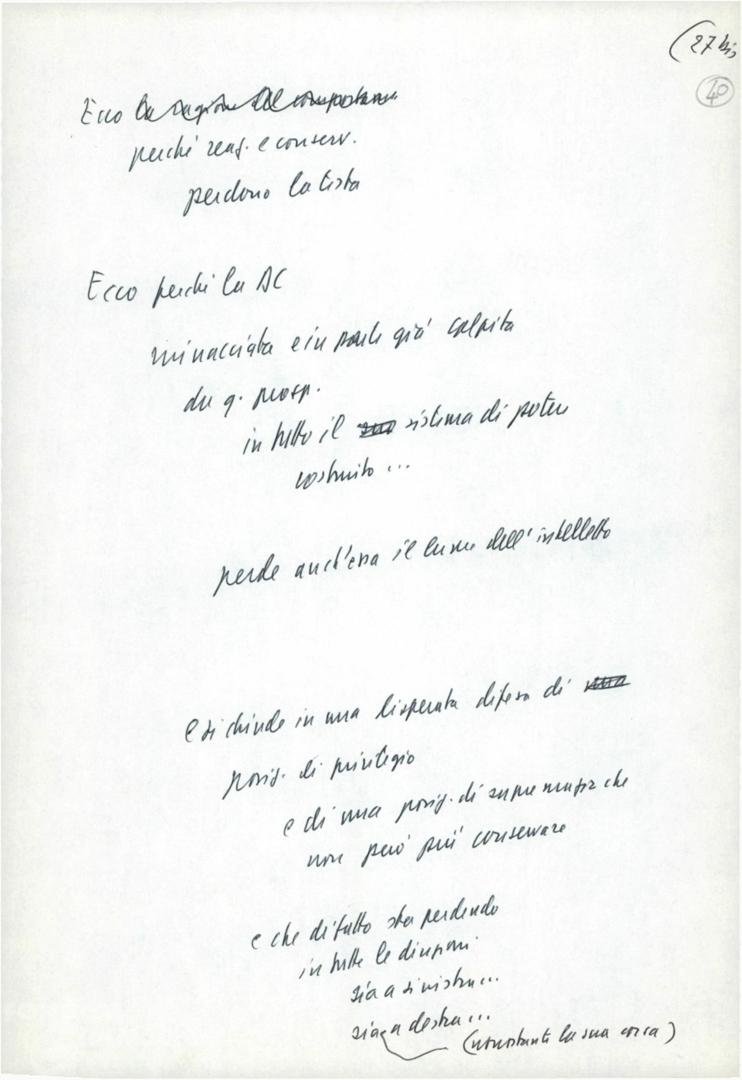 (27 bis
40
Ecco la ragione del comportam
perché reaz. e conserv.
perdono la testa
Ecco perché la DC
minacciata e in parte già colpita
da q. prosp.
in tutto il suo sistema di potere
costruito ...
perde anch'essa il lume dell'intelletto
e si chiude in una disperata difesa di una
posiz. di privilegio
e di una posiz. di supremazia che
non però più conservare
e che di fatto sta perdendo
in tutte le direzioni
sia a sinistra...
sia a destra...
(nonostante la sua corsa)